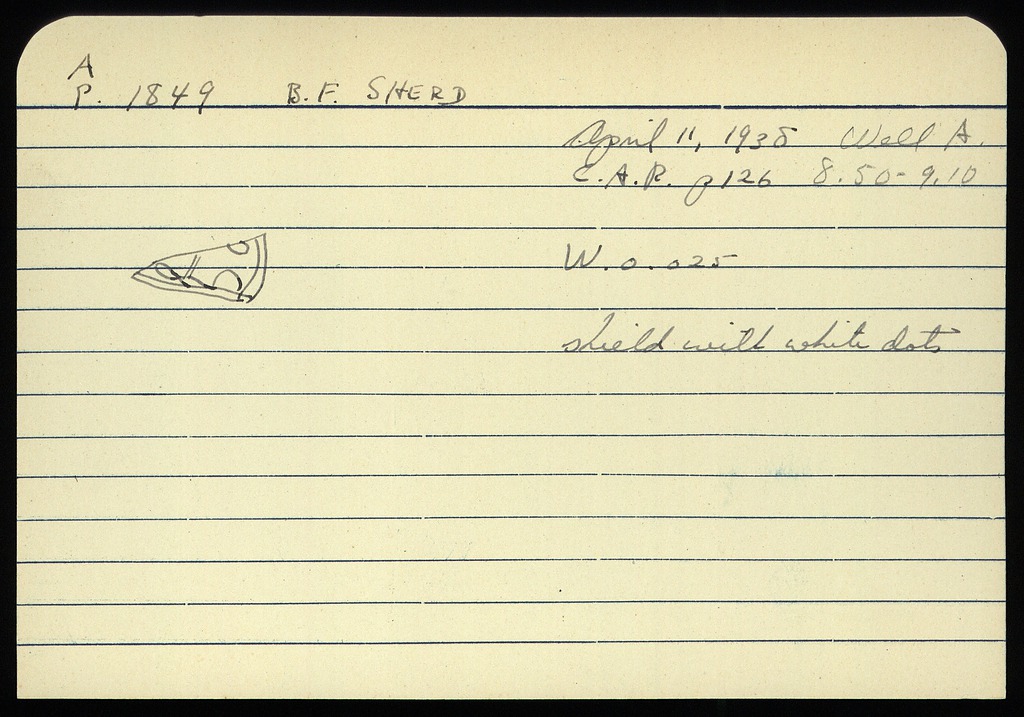 A
P. 1849 B.F. SHERD
April 11, 1938 Well A.
C.A.R. p126 8.50-9.10
W. 0.025
shield with white dots